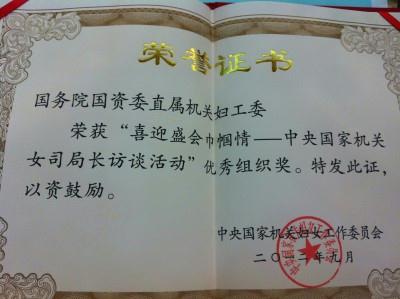 荣誉证书
国务院国资委直属机关妇工委
荣获“喜迎盛会巾帼情——中央国家机关
女司局长访谈活动”优秀组织奖。特发此证，
以资鼓励。
中央国家机关妇女工作委员会
二〇一二年九月